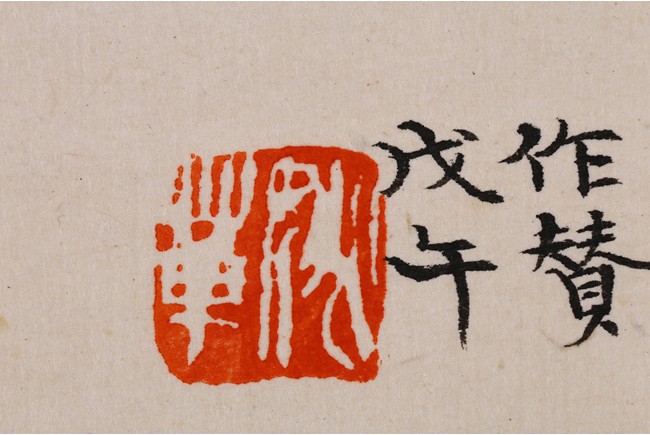 作賛
戊午